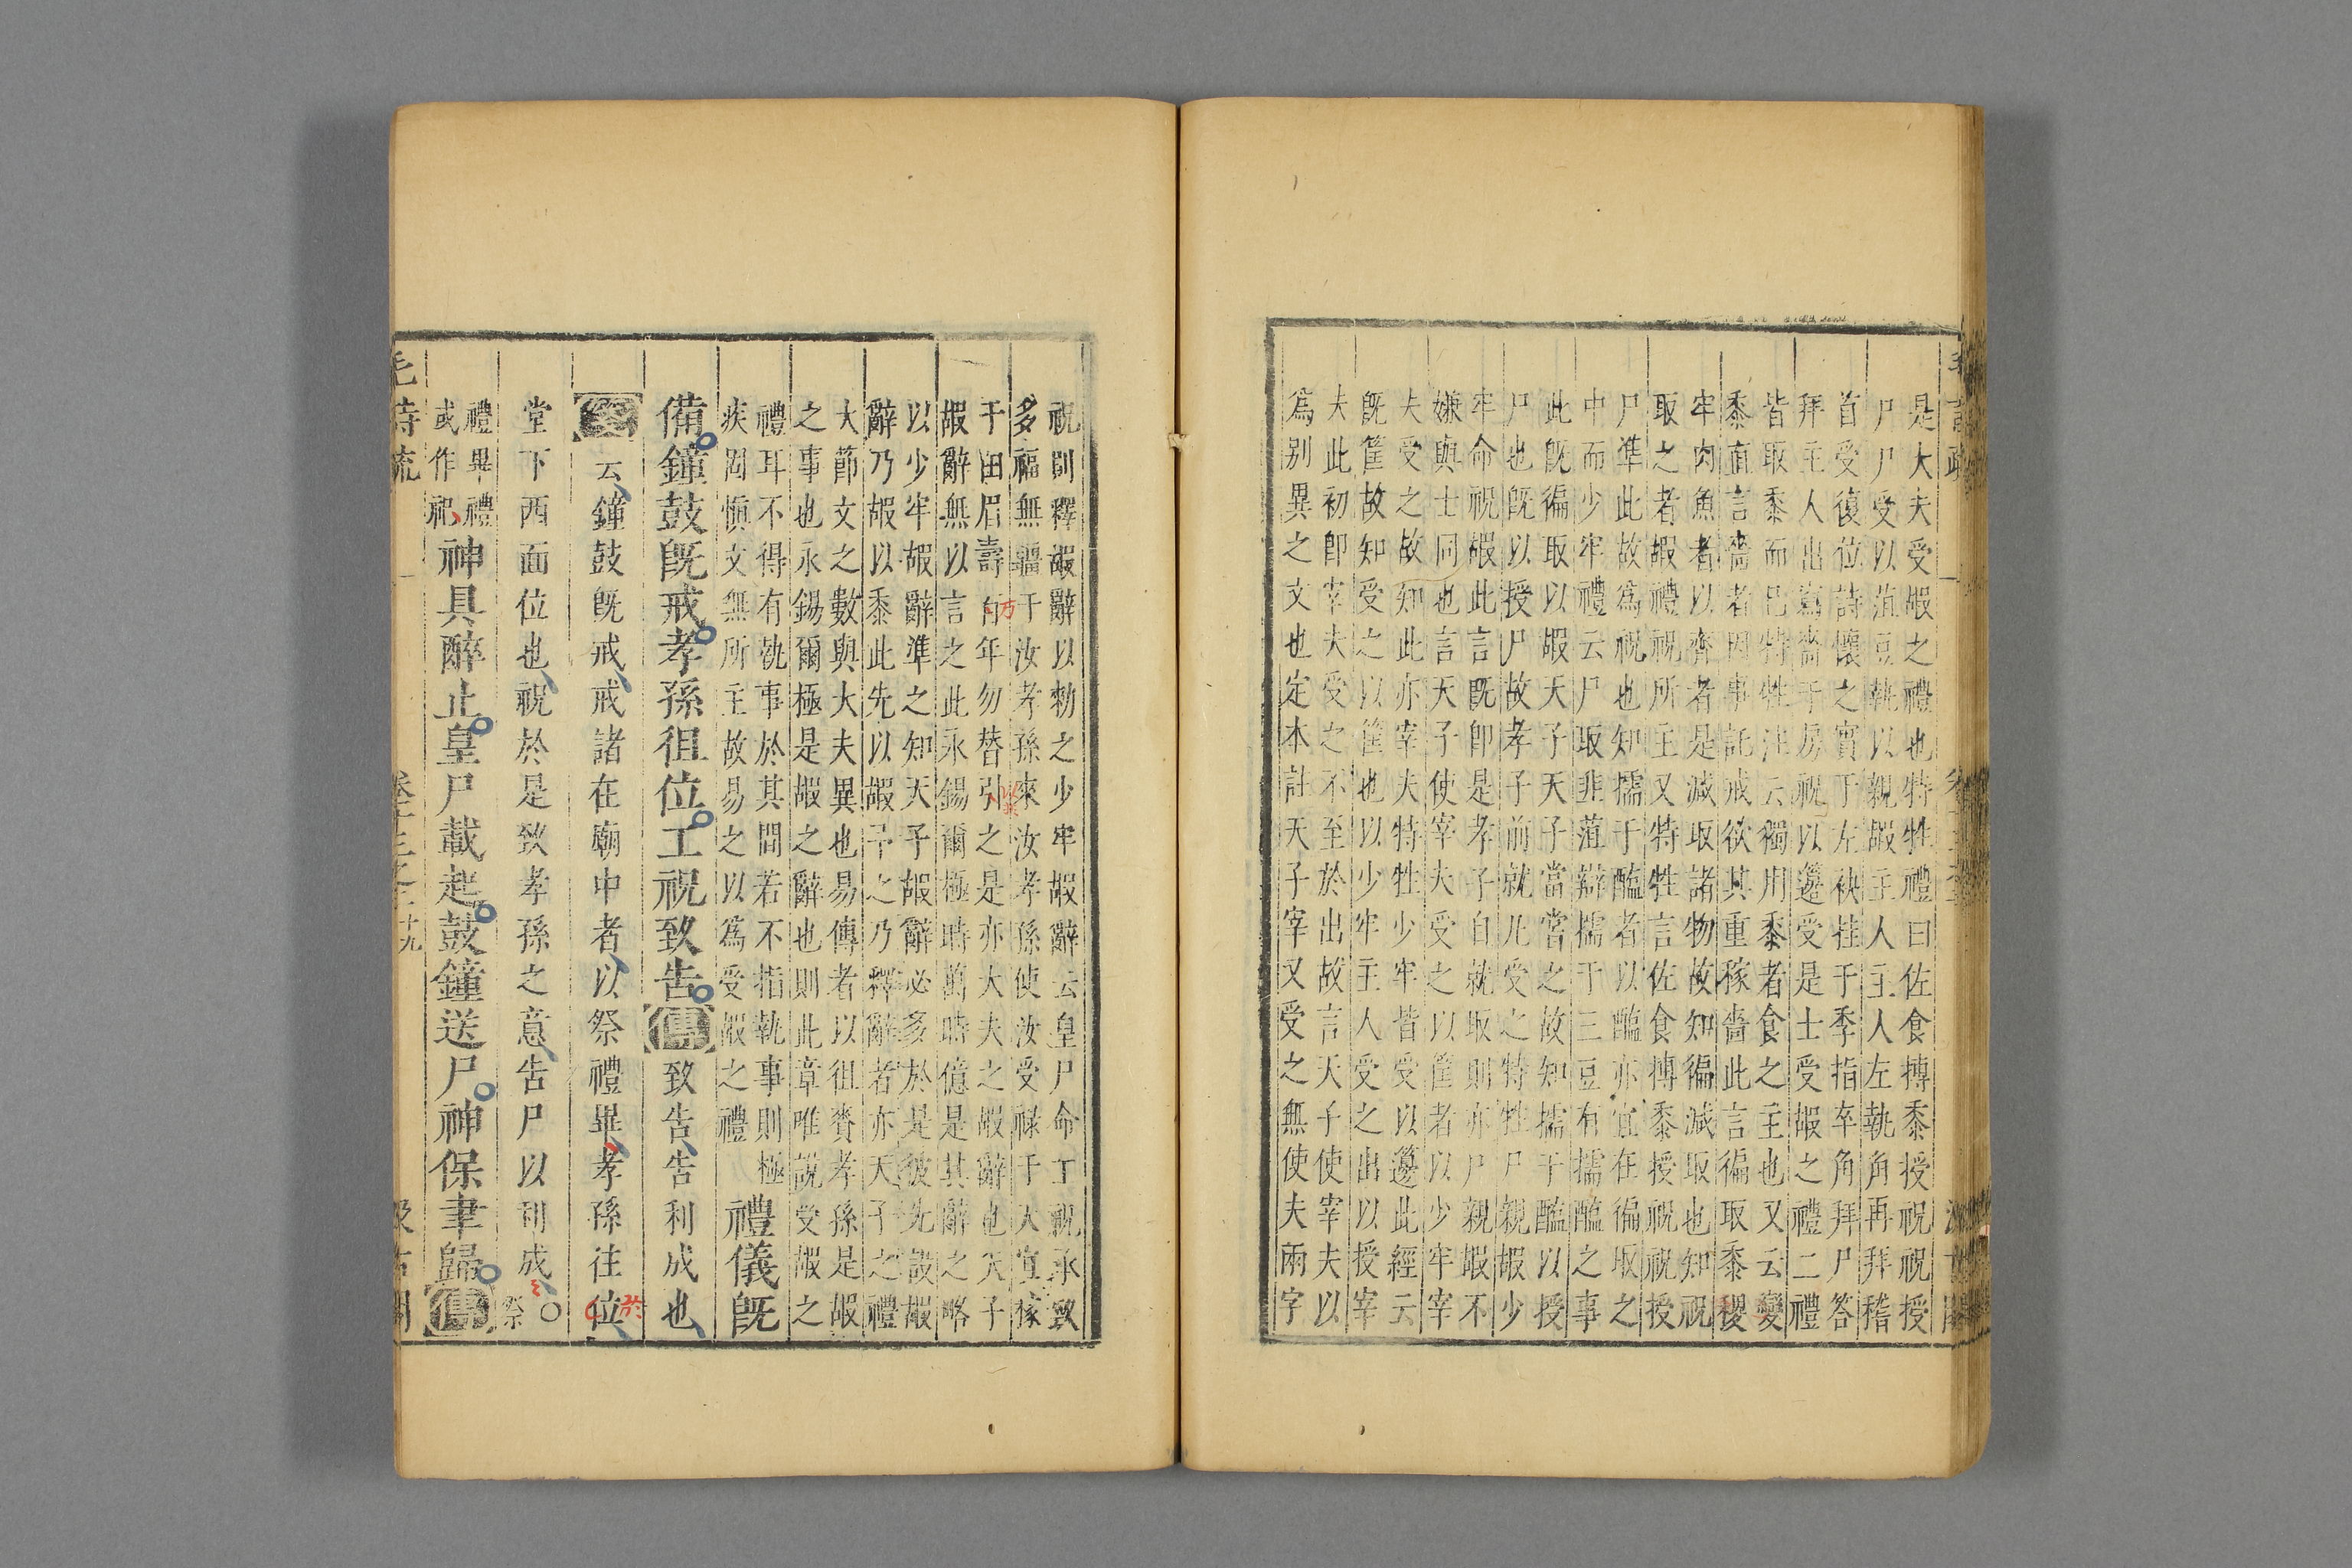 是大夫受嘏之禮也特牲禮曰佐食摶黍授祝祝授
尸尸受以菹豆執以親嘏主人主人左執角再拜稽
首受復位詩懷之實于左袂挂于季指卒角拜尸答
拜主人出寫嗇于房祝以籩受是士受嘏之禮二禮
皆取黍而已特牲注云獨用黍者食之主也又云變
黍直言嗇者因事託戒欲其重稼嗇此言徧取黍稷
牢肉魚者以齊者是減取諸物故知徧減取也知祝
取之者嘏禮祝所主又特牲言佐食摶黍授祝祝授
尸準此故為祝也知擩于醢者以醢亦宜在徧取之
中而少牢禮云尸取韭菹辯擩于三豆有擩醢之事
此既徧取以嘏天子天子當嘗之故知擩于醢以授
尸也既以授尸故孝子前就尸受之特牲尸親嘏少
牢命祝嘏此言既即是孝子自就取則亦尸親嘏不
嫌與士同也言天子使宰夫受之以筐者以少牢宰
夫受之故知此亦宰夫特牲少牢皆受以籩此經云
既筐故知受之以筐也以少牢主人受之出以授宰
夫此初即宰夫受之不至於出故言天子使宰夫以
為别異之文也定本註天子宰又受之無使夫兩字
祝則釋嘏辭以勑之少牢嘏辭云皇尸命工祝承致
多福無疆于汝孝孫來汝孝孫使汝受祿于天宜稼
于田眉壽百年勿替引之是亦大夫之嘏辭也天子
嘏辭無以言之此永錫爾極時萬時億是其辭之略
以少牢嘏辭準之知天子嘏辭必多於是彼先設嘏
辭乃嘏以黍此先以嘏予之乃釋辭者亦天子之禮
大節文之數與大夫異也易傳者以徂賚孝孫是嘏
之事也永錫爾極是嘏之辭也則此章唯說受嘏之
禮耳不得有執事於其間若不指執事則極
疾固慎文無所主故易之以為受嘏之禮
禮儀既
備鐘鼓既戒孝孫徂位工祝致告傳致告告利成也
云鐘鼓既戒戒諸在廟中者以祭禮畢孝孫往位
堂下西面位也祝於是致孝孫之意告尸以利成○祭
禮畢禮
或作祀
神具醉止皇尸載起鼓鐘送尸神保聿歸傳